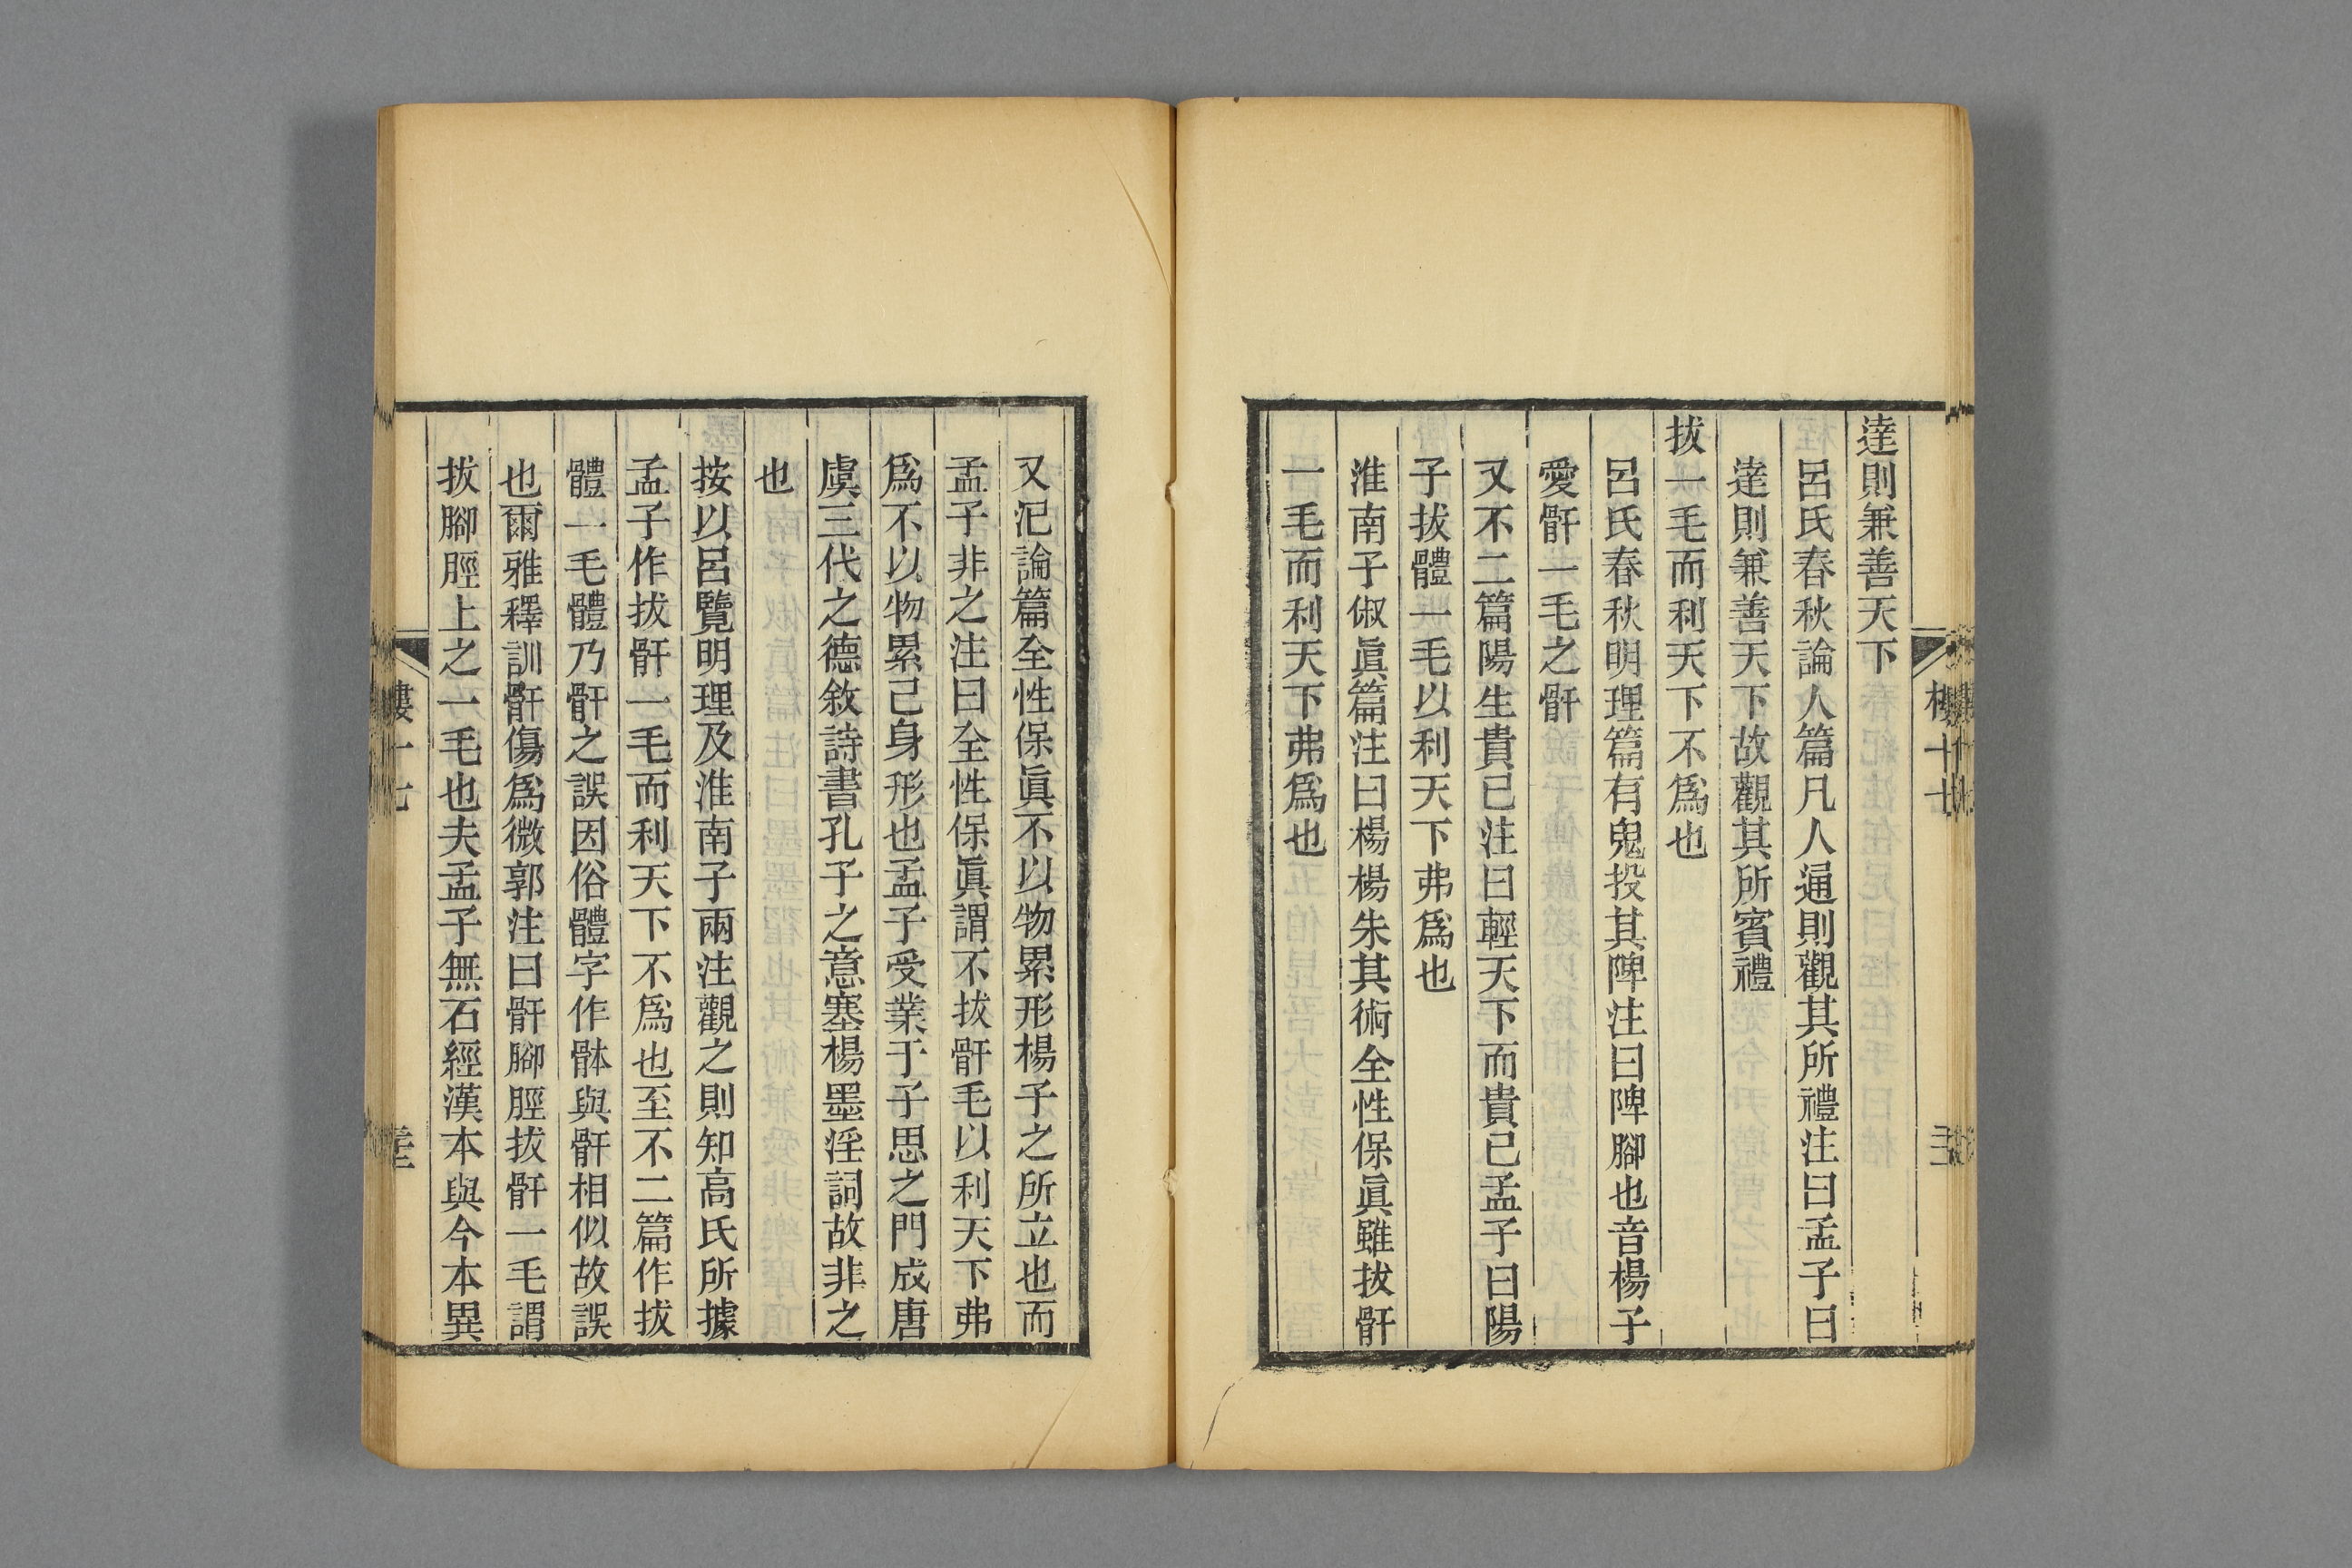 達則兼善天下
呂氏春秋論人篇凡人通則觀其所禮注曰孟子曰
達則兼善天下故觀其所賓禮
拔一毛而利天下不爲也
呂氏春秋明理篇有鬼投其陴注曰陴腳也音楊子
愛骭一毛之骭
又不二篇陽生貴已注曰輕天下而貴已孟子曰陽
子拔體一毛以利天下弗爲也
淮南子俶眞篇注曰楊楊朱其術全性保眞雖拔骭
一毛而利天下弗爲也
又氾論篇全性保眞不以物累形楊子之所立也而
孟子非之注曰全性保眞謂不拔骭毛以利天下弗
爲不以物累己身形也孟子受業于子思之門成唐
虞三代之德敘詩書孔子之意塞楊墨淫詞故非之
也
按以呂覽明理及淮南子兩注觀之則知高氏所據
孟子作拔骭一毛而利天下不爲也至不二篇作拔
體一毛體乃骭之誤因俗體字作骵與骭相似故誤
也爾雅釋訓骭傷爲微郭注曰骭腳脛拔骭一毛謂
拔腳脛上之一毛也夫孟子無石經漢本與今本異
樓十七